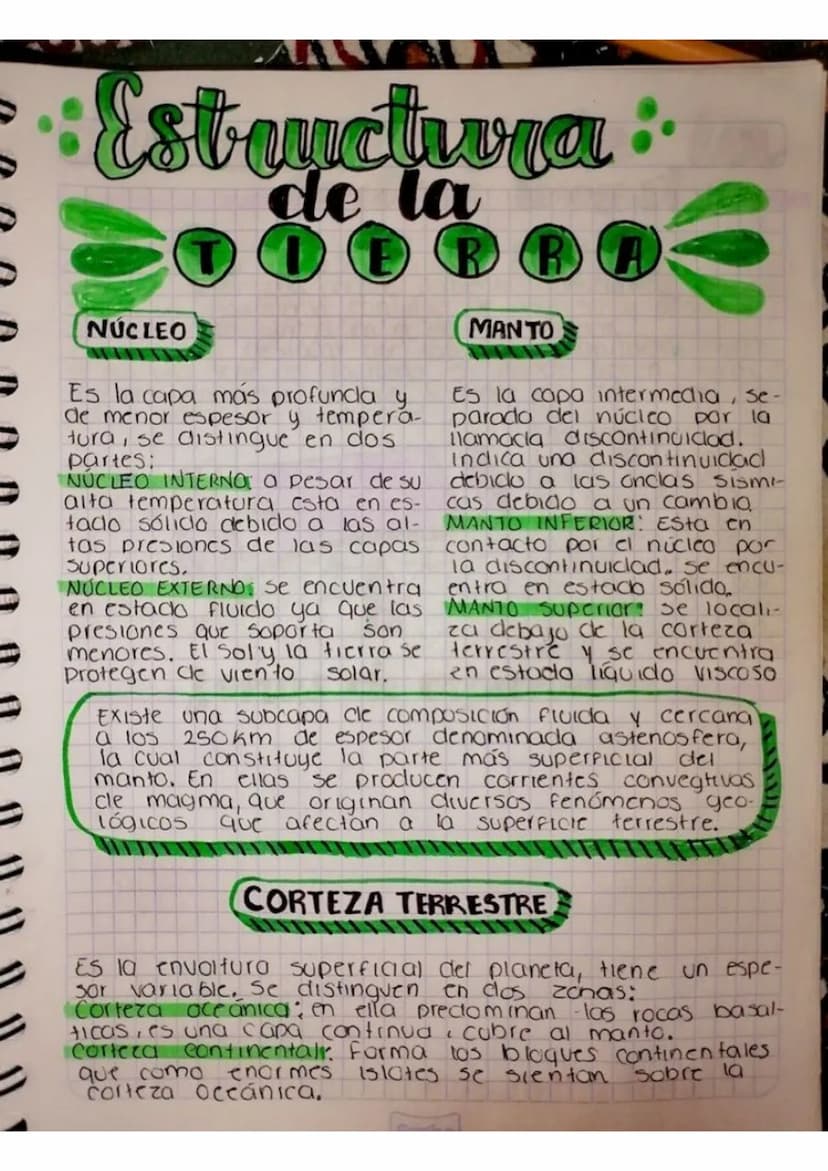 Estructura
de la
TIERRA
NÚCLEO
Es la capa más profunda y
de menor espesor y tempera-
tura, se distingue en dos
partes:
NÚCLEO INTERNO: a pesar de su
alta temperatura esta en es-
tado sólido debido a las al-
tas presiones de las capas
superiores.
NÚCLEO EXTERNO: se encuentra
en estado fluido ya que las
presiones que soporta son
menores. El sol y la tierra se
protegen de viento solar.
MANTO
Es la capa intermedia, se-
parada del núcleo por la
llamada discontinuidad.
Indica una discontinuidad
debido a las ondas sísmi-
cas debido a un cambio
MANTO INFERIOR: Esta en
contacto por el núcleo por
la discontinuidad. se encu-
entra en estado sólido.
MANTO superior: se locali-
za debajo de la corteza
terrestre y se encuentra
en estado líquido viscoso
Existe una subcapa de composición fluida y cercana
a los 250km de espesor denominada astenosfera,
la cual constituye la parte más superficial del
manto. En ellas se producen corrientes convegtivas
de magma, que originan diversos fenómenos geo-
lógicos que afectan a la superficie terrestre.
CORTEZA TERRESTRE
Es la envoltura superficial del planeta, tiene un espe-
sor variable. Se distinguen en dos zonas:
Corteza oceánica: en ella predominan las rocas basal-
ticos, es una capa continua cubre al manto.
Corteza continental: Forma los bloques continentales
que como enormes islotes se sientan sobre la
corteza oceánica.